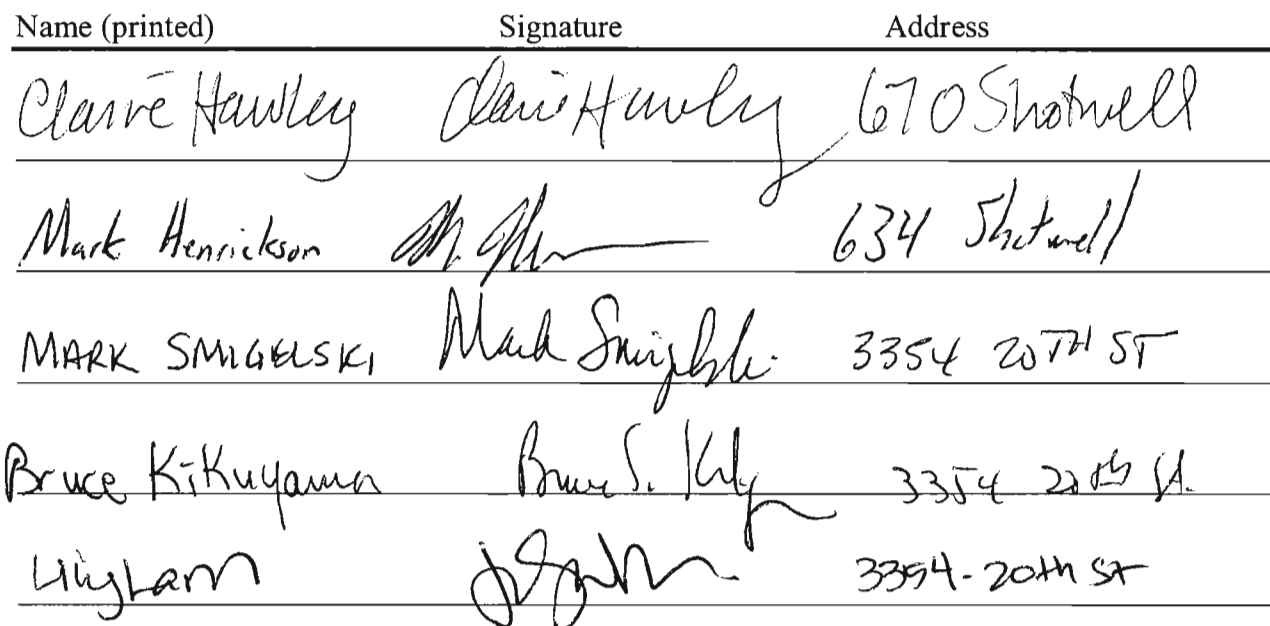 Name (printed) Signature Address
Claire Hawley Claire Hawley 670 Shotwell
Mark Henrickson 634 Shotwell
MARK SMIGELSKI Mark Smigelski 3354 20TH ST
Bruce Kikuyama Bruce S. 3354 20th St.
Lam 3354-20th ST